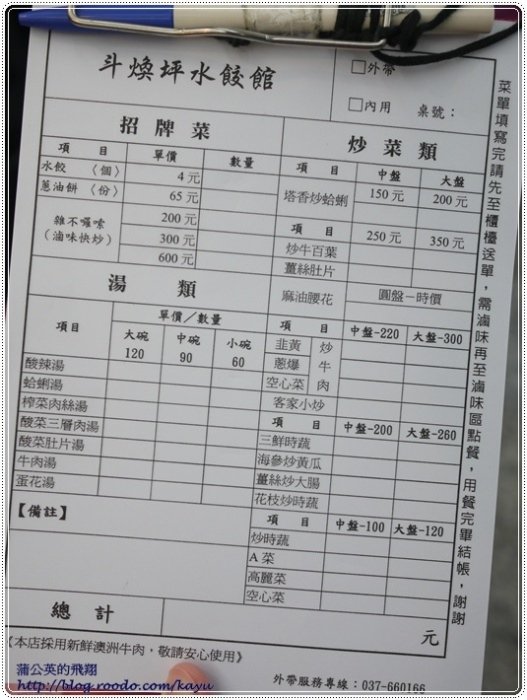 斗煥坪水餃館
□外帶
□內用 桌號：
招牌菜
項目 單價 數量
水餃〈個〉 4元
蔥油餅〈份〉 65元
雜不囉嗦（滷味快炒） 200元
300元
600元
湯類
項目 單價／數量
大碗 120 中碗 90 小碗 60
酸辣湯
蛤蜊湯
榨菜肉絲湯
酸菜三層肉湯
酸菜肚片湯
牛肉湯
蛋花湯
【備註】
炒菜類
項目 中盤 大盤
塔香炒蛤蜊 150元 200元
項目 250元 350元
炒牛百葉
薑絲肚片
麻油腰花 圓盤－時價
項目 中盤-220 大盤-300
韭黃 炒牛肉
蔥爆
空心菜
客家小炒
項目 中盤-200 大盤-260
三鮮時蔬
海參炒黃瓜
薑絲炒大腸
花枝炒時蔬
項目 中盤-100 大盤-120
炒時蔬
A菜
高麗菜
空心菜
總計 元
《本店採用新鮮澳洲牛肉，敬請安心使用》
外帶服務專線：037-660166
菜單填寫完請先至櫃檯送單，需滷味再至滷味區點餐，用餐完畢結帳，謝謝
蒲公英的飛翔
http://blog.roodo.com/kayu